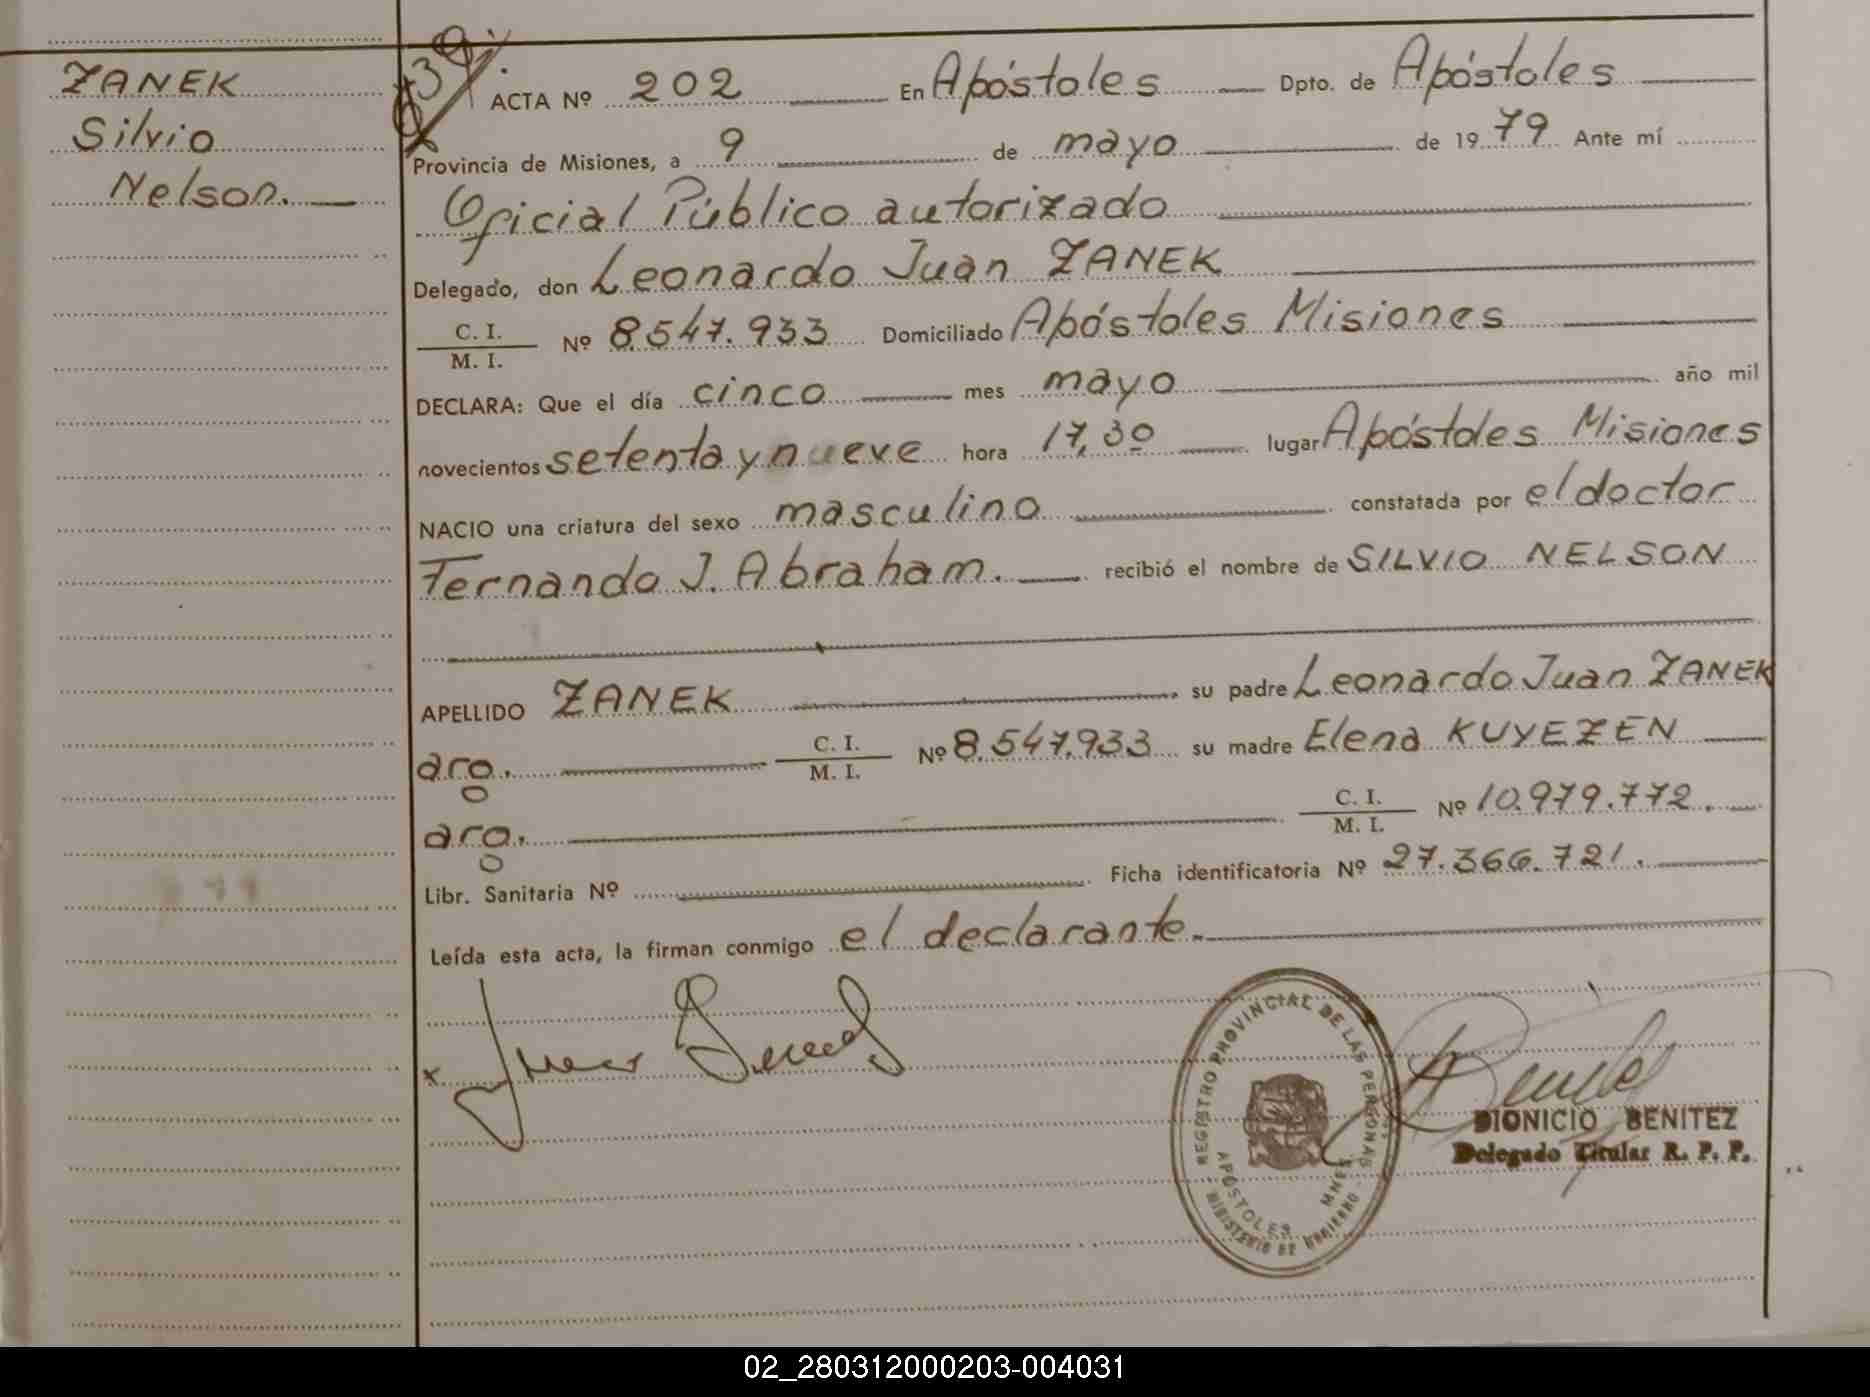 ZANEK
Silvio
Nelson.
ACTA Nº 202 En Apóstoles Dpto. de Apóstoles
Provincia de Misiones, a 9 de mayo de 1979 Ante mí
Oficial Público autorizado
Delegado, don Leonardo Juan ZANEK
C. I.
M. I. Nº 8.547.933 Domiciliado Apóstoles Misiones
DECLARA: Que el día cinco mes mayo año mil
novecientos setenta y nueve hora 17,30 lugar Apóstoles Misiones
NACIO una criatura del sexo masculino constatada por el doctor
Fernando J. Abraham. recibió el nombre de SILVIO NELSON
APELLIDO ZANEK su padre Leonardo Juan ZANEK
arg. C. I.
M. I. Nº 8.547.933 su madre Elena KUYEZEN
arg. C. I.
M. I. Nº 10.979.772.
Libr. Sanitaria Nº Ficha identificatoria Nº 27.366.721.
Leída esta acta, la firman conmigo el declarante.
REGISTRO PROVINCIAL DE LAS PERSONAS
APOSTOLES MNES
MINISTERIO DE GOBIERNO
DIONICIO BENITEZ
Delegado Titular R. P. P.
02_280312000203-004031